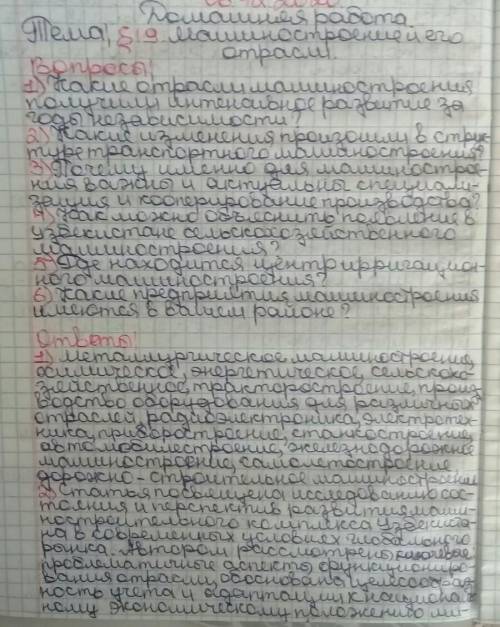 Домашняя работа.
Тема: § 19 машиностроение и его
отрасли.
Вопросы:
1) Какие отрасли машиностроения
получили интенсивное развитие за
годы независимости?
2) Какие изменения произошли в струк-
туре транспортного машиностроения?
3) Почему именно для машинострое-
ния важны и актуальны специали-
зация и кооперирование производства?
4) Как можно объяснить появление в
узбекистане сельскохозяйственного
машиностроения?
5) Где находится центр ирригацион-
ного машиностроения?
6) Какие предприятия машиностроения
имеются в вашем районе?
Ответы:
1) металлургическое машиностроение,
химическое, энергетическое, сельскохо-
зяйственное, тракторостроение, произ-
водство оборудования для различных
отраслей, радиоэлектроника, электротех-
ника, приборостроение, станкостроение,
автомобилестроение, железнодорожное
машиностроение, самолетостроение
дорожно-строительное машиностроение
2) Статья посвящена исследованию сос-
тояния и перспектив развития маши-
ностроительного комплекса узбекиста-
на в современных условиях глобального
рынка. Автором рассмотрены ключевые
проблематичные аспекты функциониро-
вания отрасли, обоснована целесообраз-
ность учета и адаптации к национа
ному экономическому положению ми-